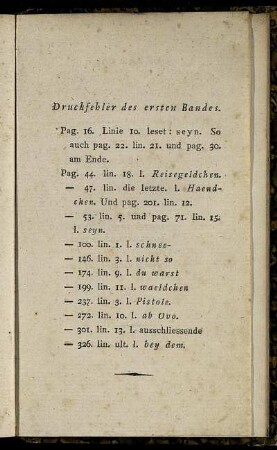 Druckfehler des ersten Bandes.
Pag. 16. Linie 10. leset: seyn. So
auch pag. 22. lin. 21. und pag. 30.
am Ende.
Pag. 44. lin. 18. l. Reisegeldchen.
— 47. lin. die letzte. l. Haend-
chen. Und pag. 201. lin. 12.
— 53. lin. 5. und pag. 71. lin. 15.
l. seyn.
— 100. lin. 1. l. schnos-
— 146. lin. 3. l. nicht so
— 174. lin. 9. l. du warst
— 199. lin. 11. l. waeldchen
— 237. lin. 3. l. Pistole.
— 272. lin. 10. l. ab Ovo.
— 301. lin. 13. l. ausschliessende
— 326. lin. ult. l. bey dem.